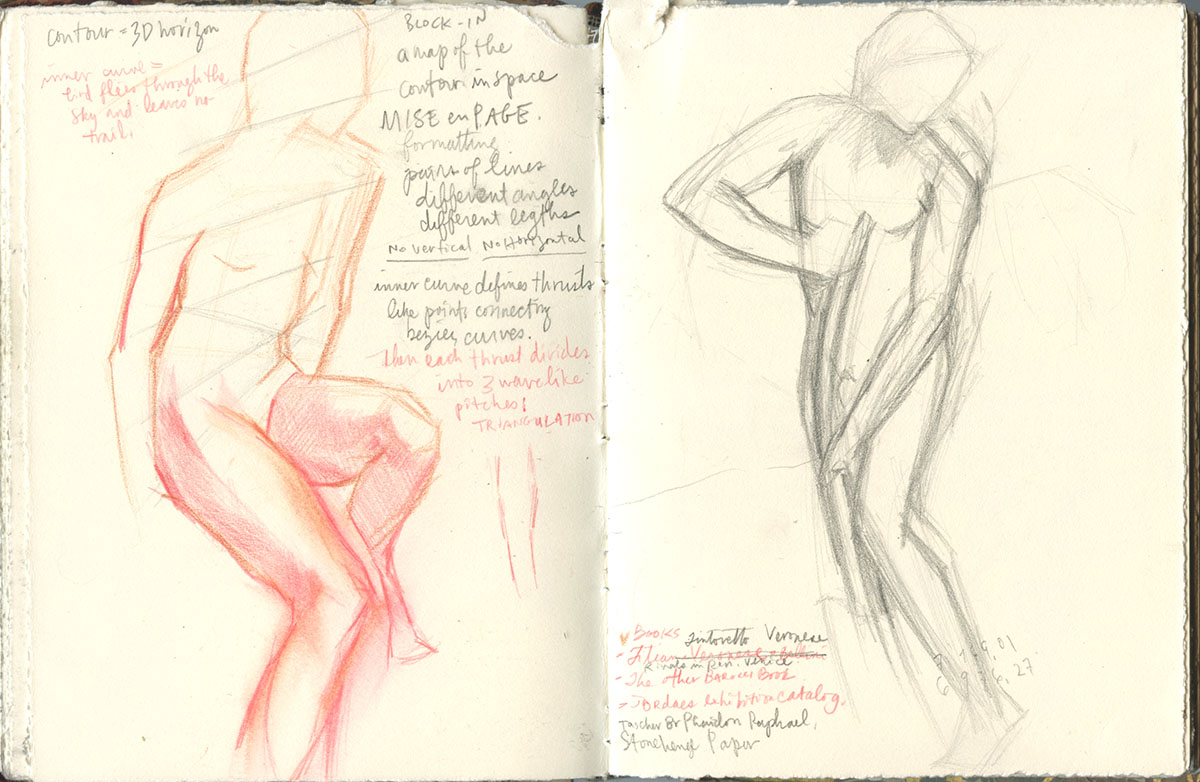 contour = 3D horizon
inner curve =
bird flies through the
sky and leaves no
trail.
BLOCK-IN
a map of the
contour in space
MISE en PAGE.
formatting
pairs of lines
different angles
different legths
No vertical No Horizontal
inner curve defines thrusts
like points connecting
bezier curves.
then each thrust divides
into 3 wavelike
pitches!
TRIANGULATION
BOOKS Tintoretto Veronese
- Titian
Rivals in Ren. Venice
- The other Book
exhibition catalog.
Phaidon Raphael,
Stonehenge Paper